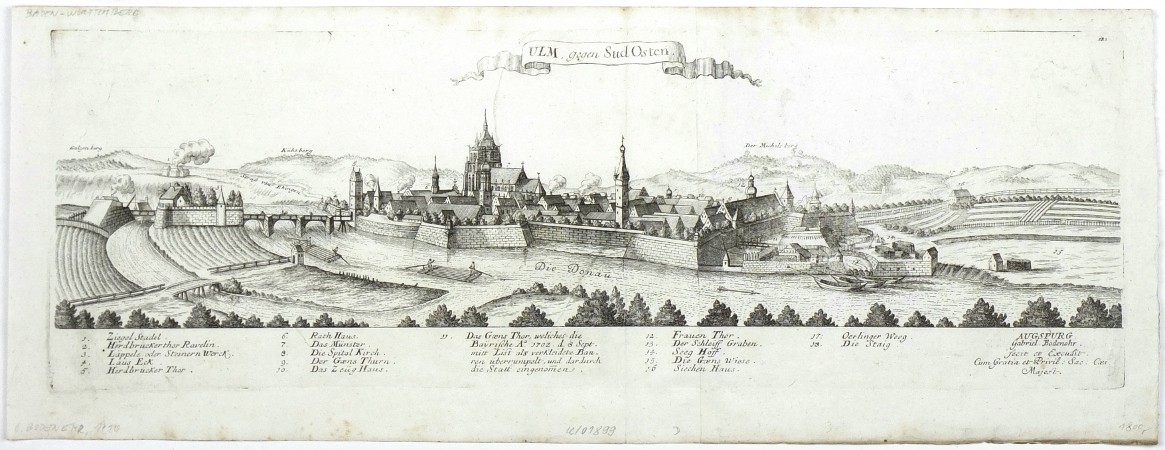 BADEN-WÜRTTEMBERG
ULM, gegen Sud Osten.
Galgenberg
Kühberg
Der Michels berg
Die Donau
15
1. Ziegel Stadel.
2. Herdbruckerthor Ravelin.
3. Lappele oder Steinern Werck.
4. Laug Eck
5. Herdbrucker Thor.
6. Rath Haus.
7. Das Münster
8. Die Spital Kirch.
9. Der Gæns Thurn
10. Das Zeug Haus.
11. Das Gæns Thor, welches die
Bayrische Aº 1702. d. 8 Sept.
mitt List als verkleidete Bau,,
ren überrumpelt, und dardurch
die Statt eingenomen.
12. Frauen Thor.
13. Der Schleiff Graben.
14. Seeg Hoff.
15. Die Gæns Wise.
16 Siechen Haus.
17. Oerlinger Weeg
18. Die Staig
AUGSPURG
Gabriel Bodenehr.
fecit et Excudit
Cum Gratia et Privil. Sac. Cæs.
Majest.
G. BODENEHR, 1720